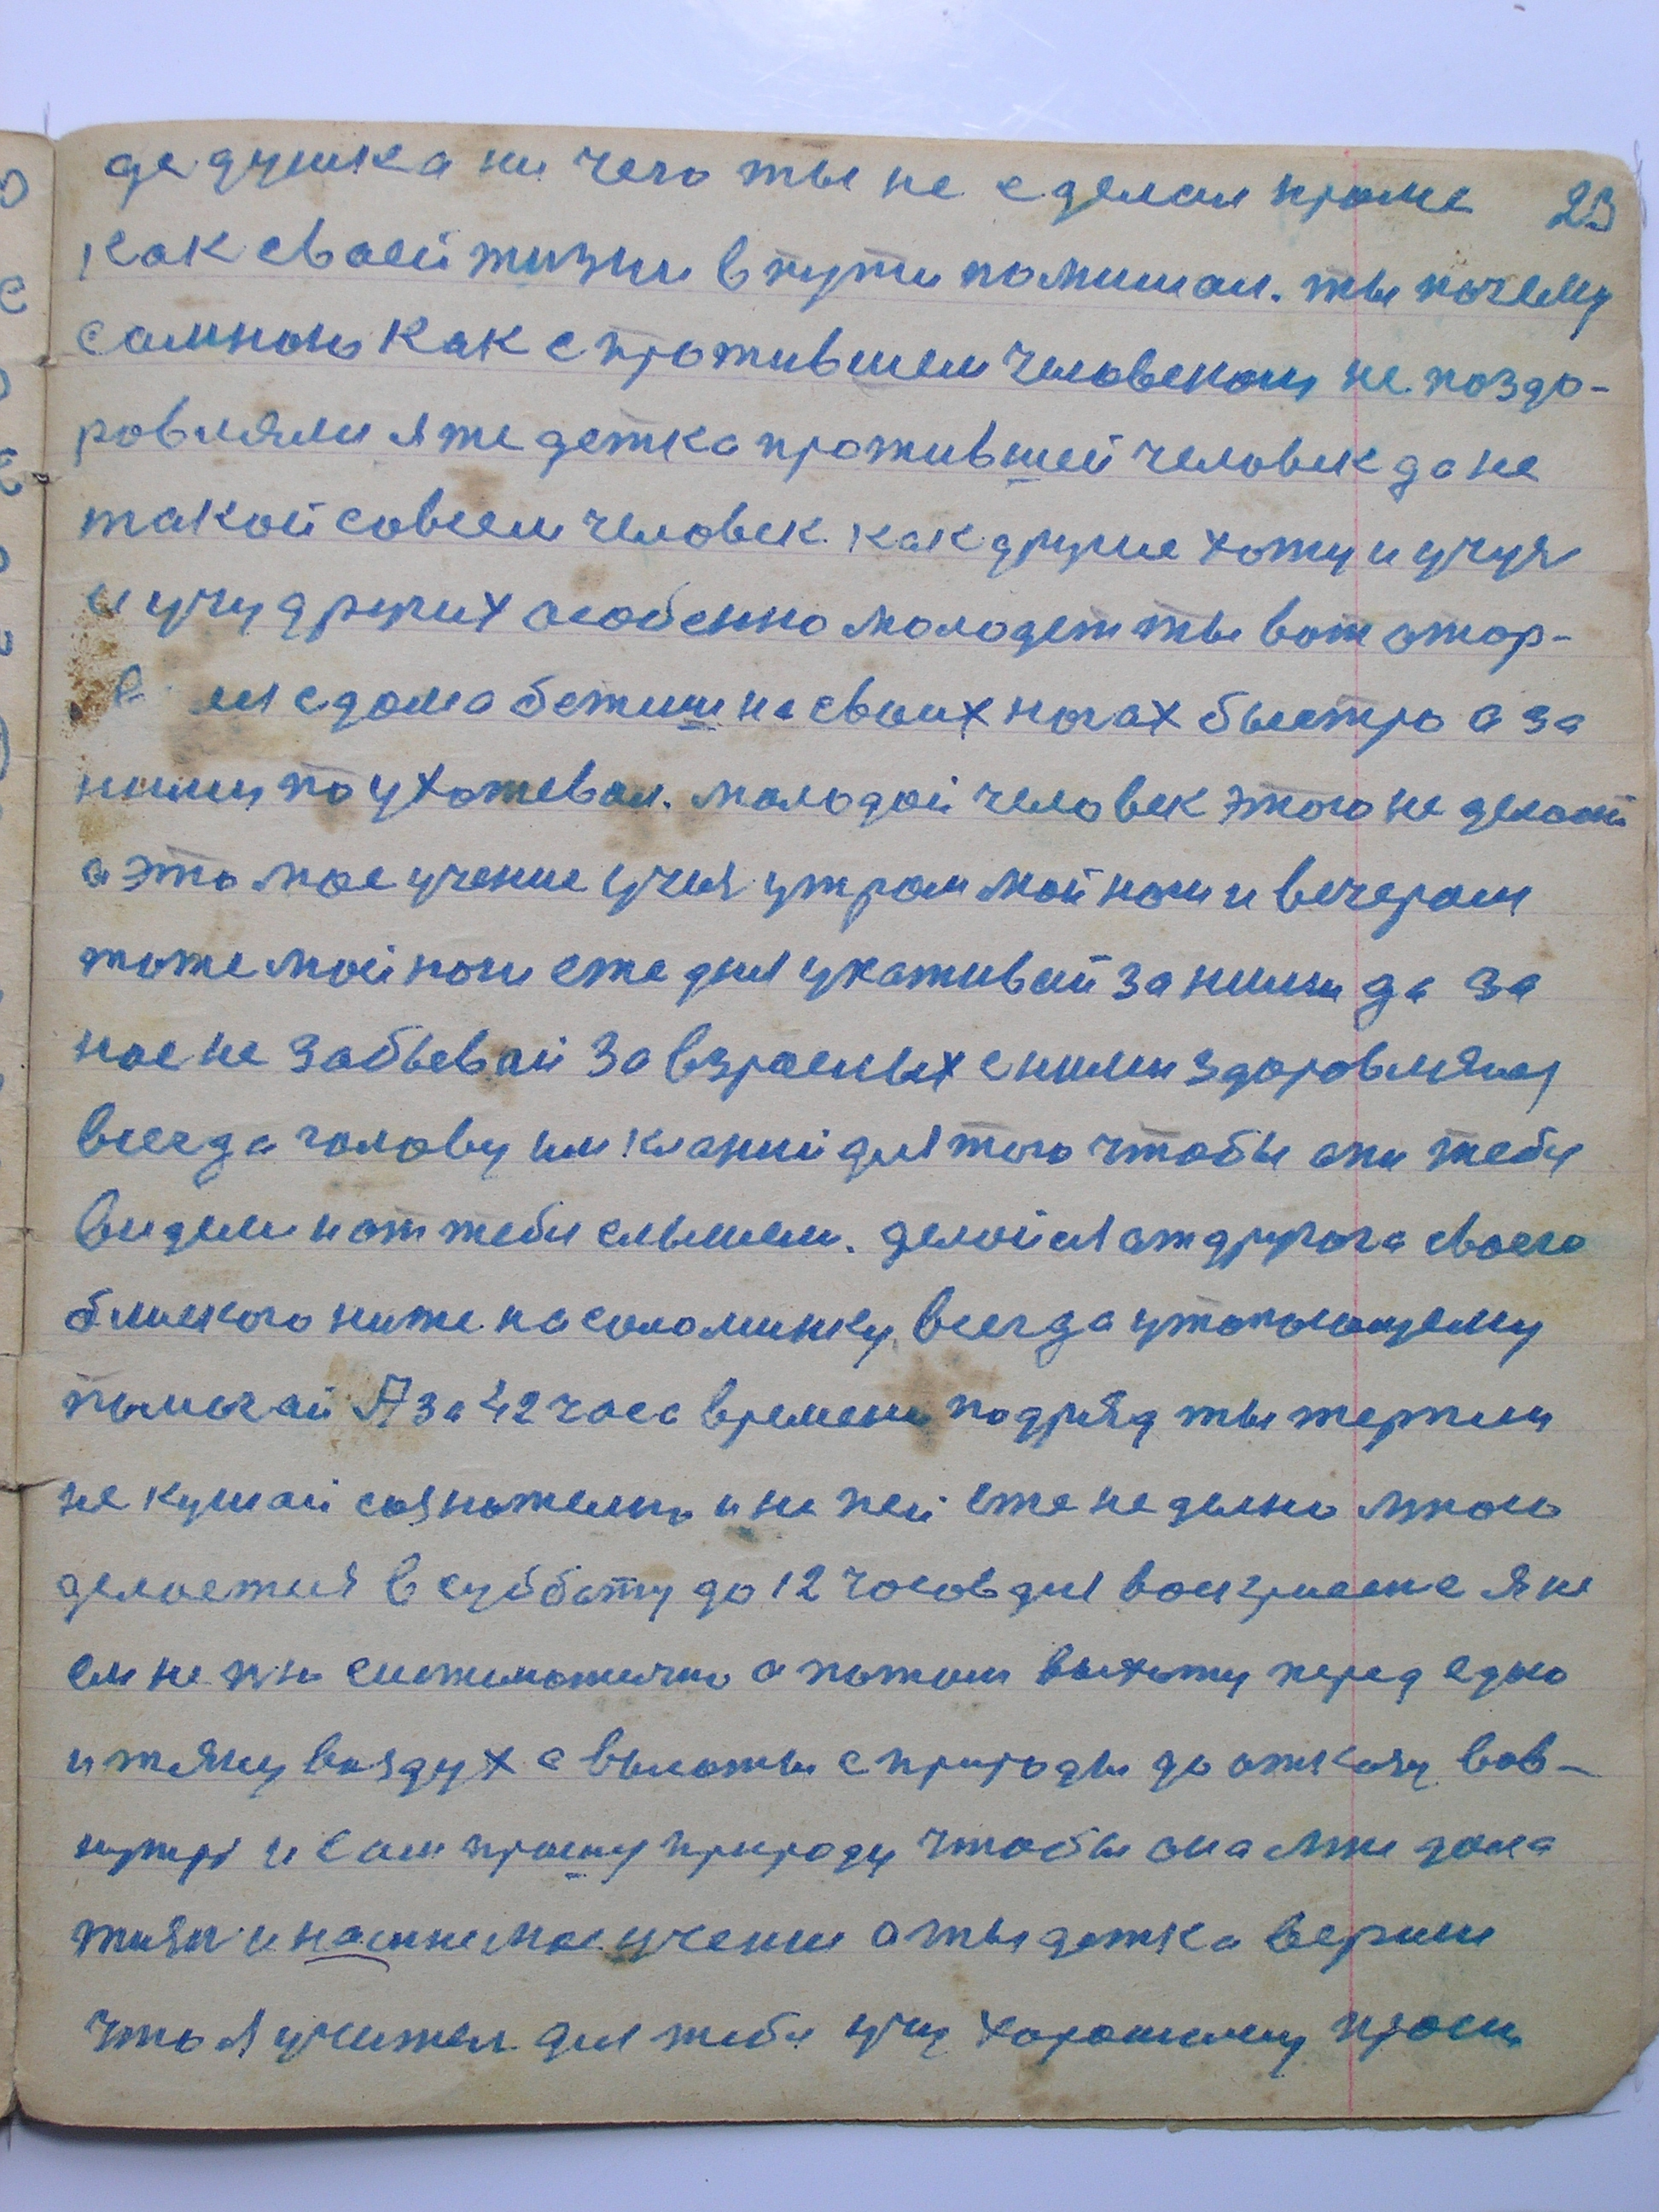 дедушка ни чего ты не сделал кроме 23
как своей жизни в пути помишал. ты почему
сомною как спрожившем человеком не поздо-
ровляли я же детка проживший человек да не
такой совсем человек как другие хожу и учуя
и учу других особенно молодежт ты вот отор-
ся сдома бежиш на своих ногах быстро а за
ними по ухожевал. молодой человек этого не делай
а это мое учение учися утром мой ноги и вечером
тоже мой ноги еже дня укаживай за ними да за
нас не забывай За взрослых с ними здоровляися
всегда голову им кланий для того чтобы они тебя
видели и от тебя слышели. делайся от другога своего
близкого ниже на соломинку всегда утопающему
помогай А за 42 часа времени подряд ты терпи
не кушай сознательно и не пей еже недельно мною
делается в суббату до 12 часов дня воскресене я не
ем не пю систиматично а потом выхожу перед едою
и тяну воздух с высоты с природы до откозу вов-
нутрь и сам прошу природу чтобы она мне дала
жизн и мое учение а ты детка вериш
что я учител для тебя учу хорошему прошу